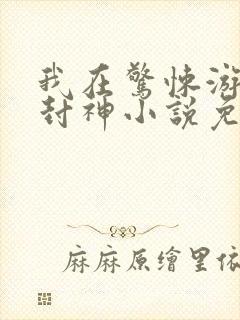 我在驚悚游
封神小說免
麻麻原繪里依